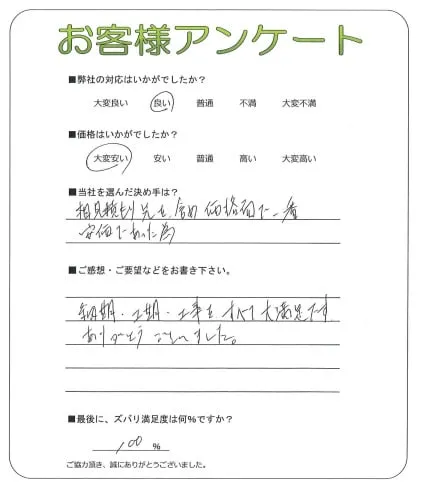 お客様アンケート
■弊社の対応はいかがでしたか？
大変良い 良い 普通 不満 大変不満
■価格はいかがでしたか？
大変安い 安い 普通 高い 大変高い
■当社を選んだ決め手は？
相見積もり先を含め価格面で一番
安価であった為
■ご感想・ご要望などをお書き下さい。
納期・工期・工事もすべて大満足です
ありがとうございました。
■最後に、ズバリ満足度は何％ですか？
100 %
ご協力頂き、誠にありがとうございました。